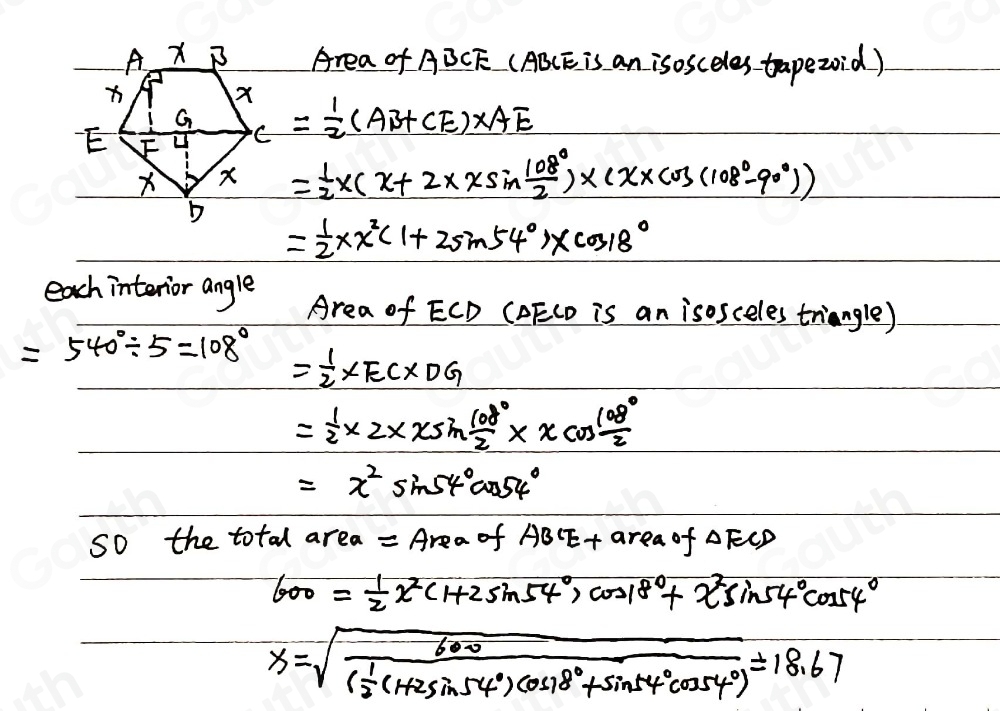 A x B
x x
E F G C
x x
D
Area of ABCE (ABCE is an isosceles trapezoid)
= 1/2 (AB+CE)×AE
= 1/2 ×( x+ 2× x sin 108°/2 )×(x× cos (108°-90°))
= 1/2 × x²( 1+ 2sin 54° )× cos18°
each interior angle
= 540° ÷ 5 = 108°
Area of ECD (△ECD is an isosceles triangle)
= 1/2 × EC × DG
= 1/2 × 2× x sin 108°/2 × x cos 108°/2
= x² sin54° cos54°
SO the total area = Area of ABCE + area of △ECD
600 = 1/2 x² (1+2 sin 54°) cos18° + x² sin54° cos54°
x = √(600 / (1/2 (1+2sin54°) cos18° + sin54° cos54°)) ≐ 18.67
Gauth